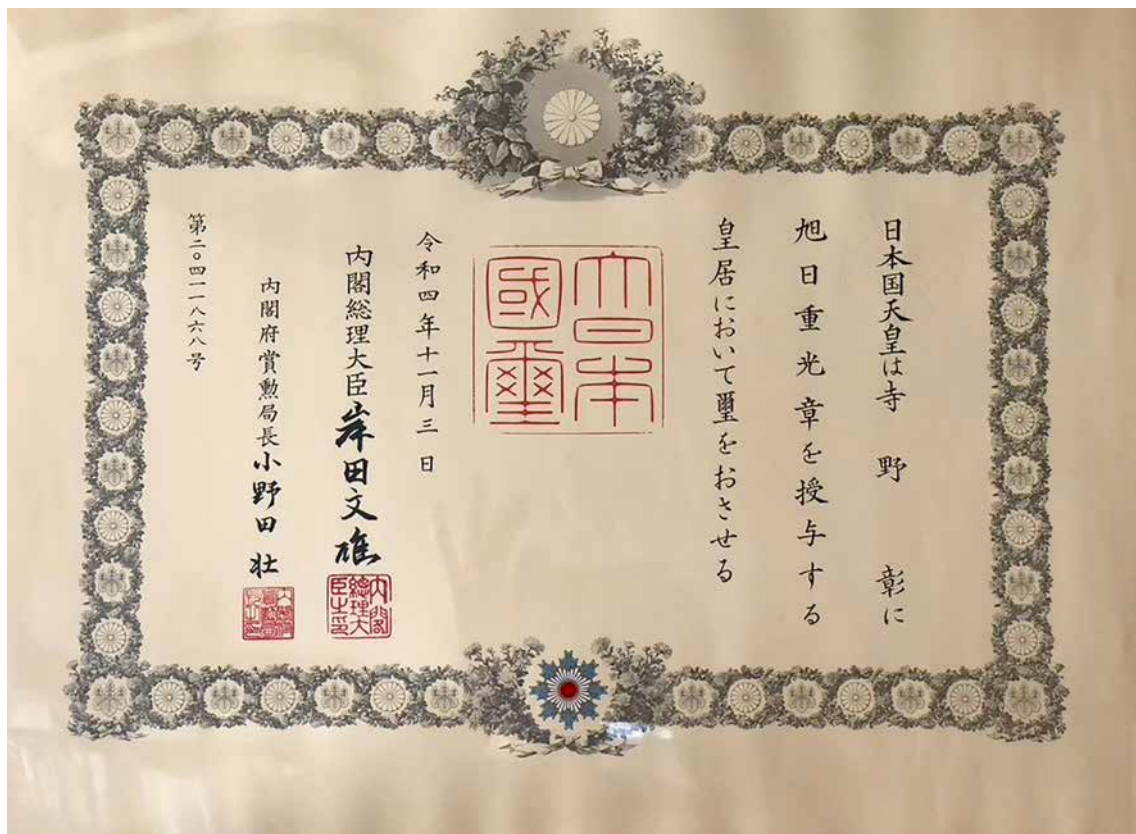 日本国天皇は寺野彰に
旭日重光章を授与する
皇居において璽をおさせる
大日本
國璽
令和四年十一月三日
内閣総理大臣岸田文雄
内閣総理大
臣之印
内閣府賞勲局長小野田壮
第二〇四一一八六八号